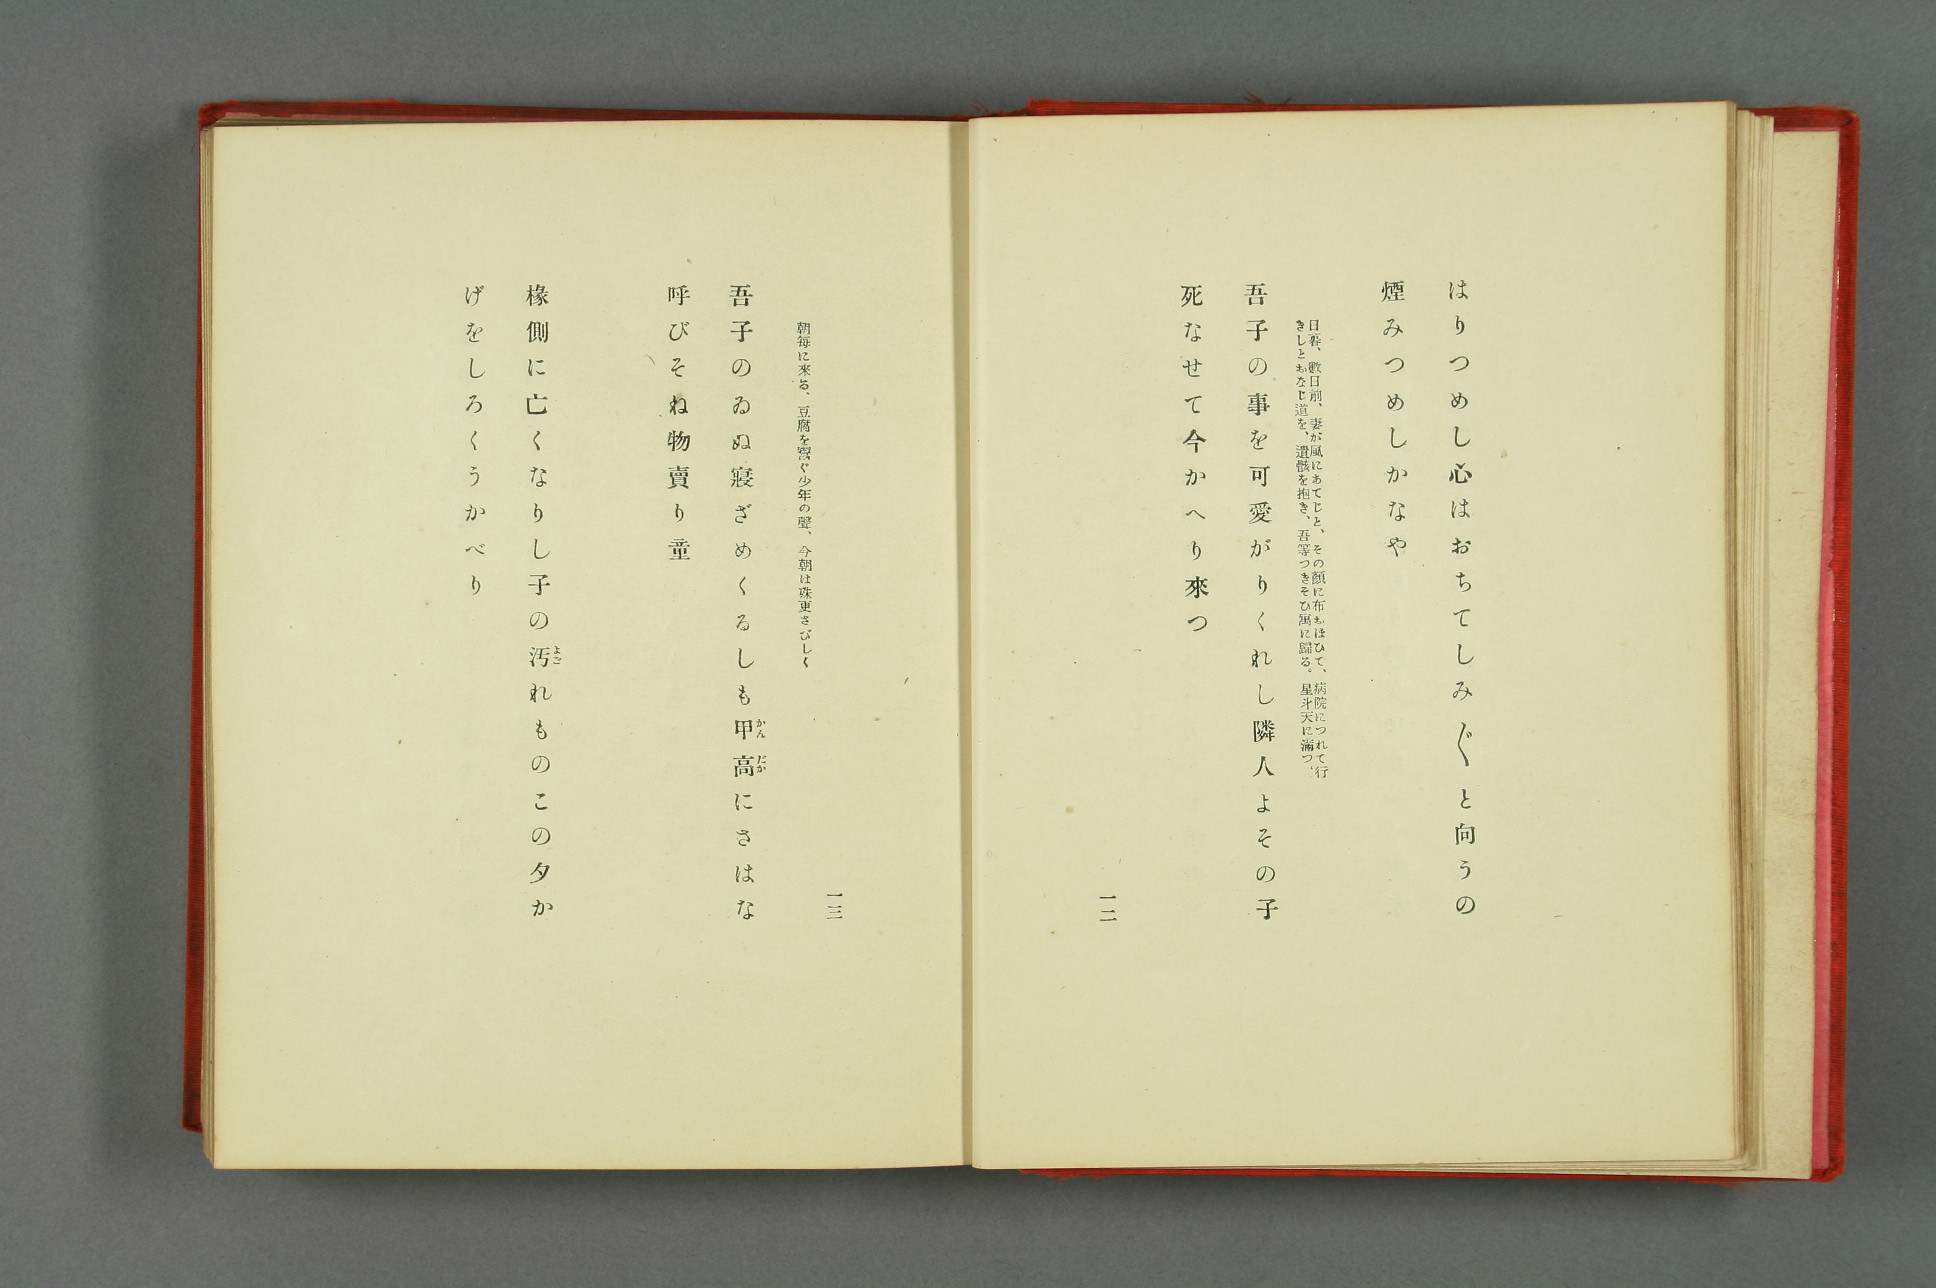 はりつめし心はおちてしみ〴〵と向うの
煙みつめしかなや
日暮、數日前、妻が風にあてじと、その顏に布おほひて、病院につれて行
きしとおなじ道を、遺骸を抱き、吾等つきそひ寓に歸る。星斗天に滿つ、
吾子の事を可愛がりくれし隣人よその子
死なせて今かへり來つ
一二
朝每に來る、豆腐を鬻ぐ少年の聲、今朝は殊更さびしく
吾子のゐぬ寢ざめくるしも甲高にさはな
かんだか
呼びそね物賣り童
椽側に亡くなりし子の汚れものこの夕か
よご
げをしろくうかべり
一三